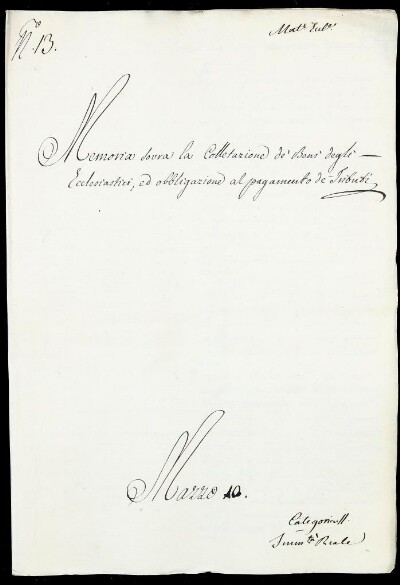 N.º 13.
Mat.
Memoria sovra la Colletazione de' Beni degli —
Ecclesiastici, ed obbligazione al pagamento de' Tributi
Mazzo 10.
Categoria II.
Reale